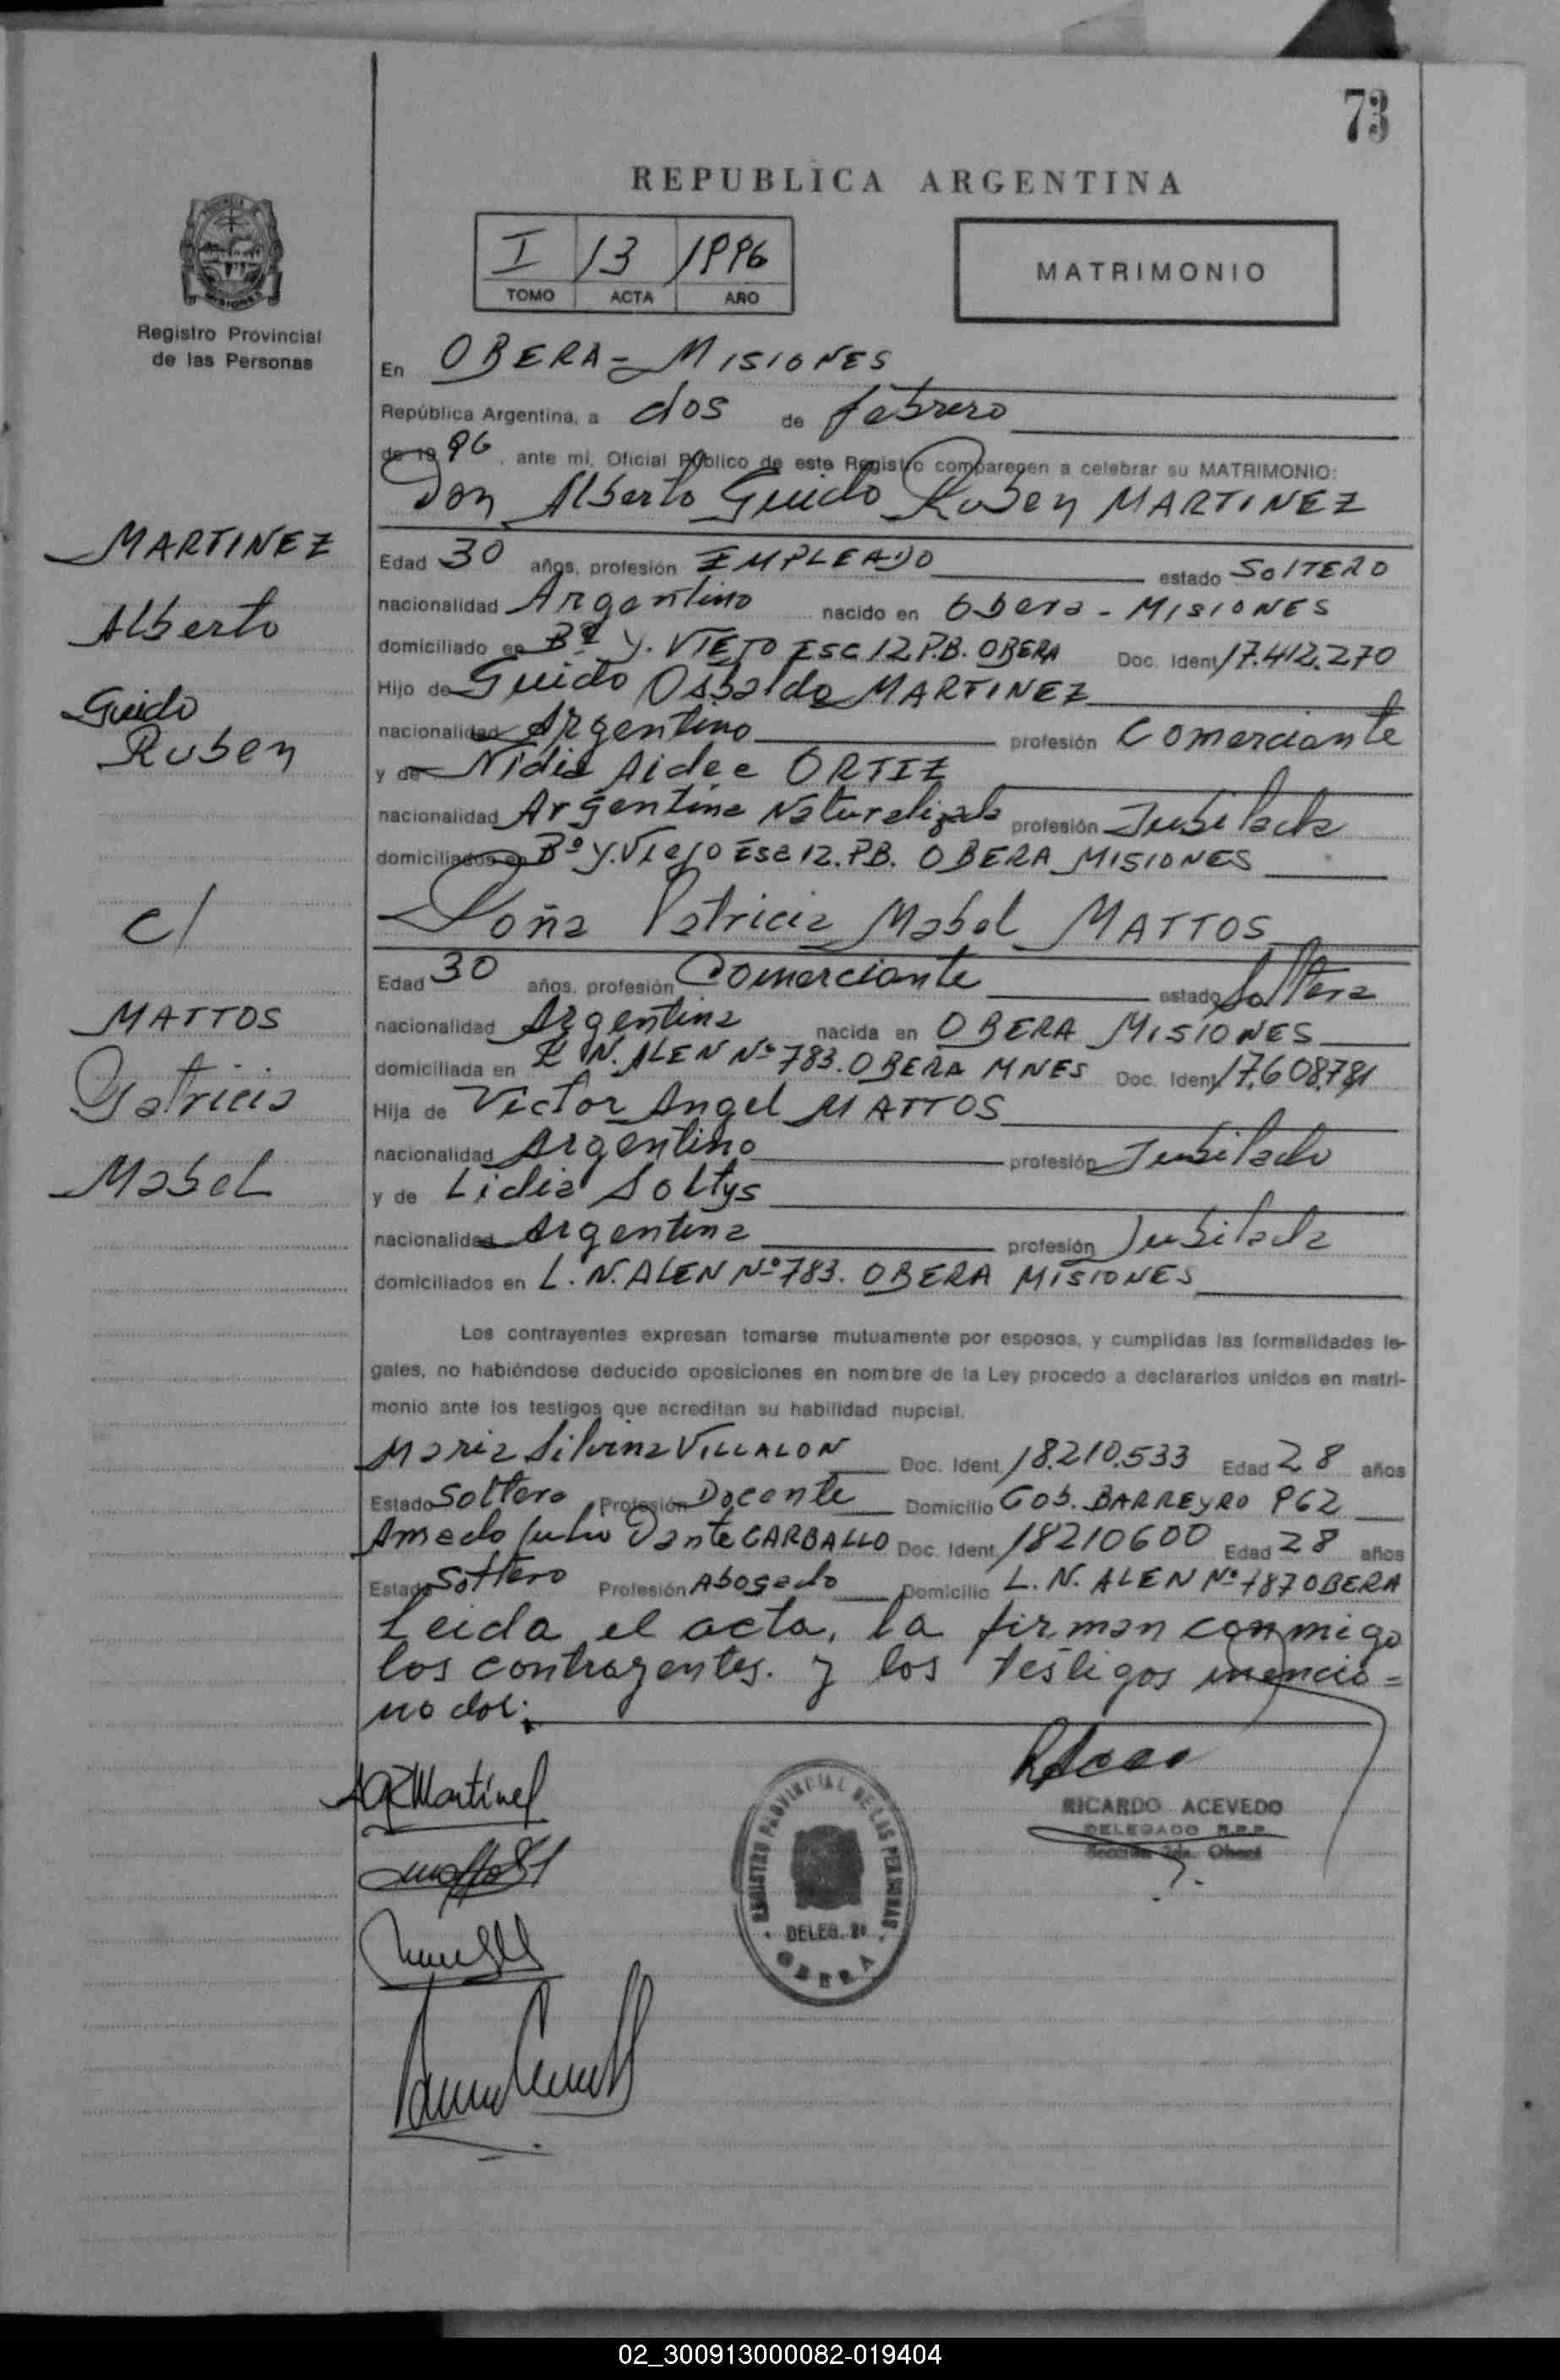 73
REPUBLICA ARGENTINA
I 13 1996
TOMO ACTA AÑO
MATRIMONIO
Registro Provincial
de las Personas
En OBERA - MISIONES
República Argentina, a dos de febrero
de 1996, ante mi, Oficial Público de este Registro comparecen a celebrar su MATRIMONIO:
Don Alberto Guido Ruben MARTINEZ
MARTINEZ
Alberto
Guido
Ruben
Edad 30 años, profesión EMPLEADO estado SOLTERO
nacionalidad Argentino nacido en Obera - MISIONES
domiciliado en Bº Y. VIEJO ESC 12 P.B. OBERA Doc. Ident. 17.412.270
Hijo de Guido Osbaldo MARTINEZ
nacionalidad Argentino profesión Comerciante
y de Nidia Aidee ORTIZ
nacionalidad Argentina Naturalizada profesión Jubilada
domiciliados en Bº Y. Viejo Esc 12. P.B. OBERA MISIONES
c/
Doña Patricia Mabel MATTOS
MATTOS
Patricia
Mabel
Edad 30 años, profesión Comerciante estado Soltera
nacionalidad Argentina nacida en OBERA MISIONES
domiciliada en L. N. ALEN Nº 783. OBERA MNES Doc. Ident. 17.608.781
Hija de Victor Angel MATTOS
nacionalidad Argentino profesión Jubilado
y de Lidia Soltys
nacionalidad Argentina profesión Jubilada
domiciliados en L. N. ALEN Nº 783. OBERA MISIONES
Los contrayentes expresan tomarse mutuamente por esposos, y cumplidas las formalidades le-
gales, no habiéndose deducido oposiciones en nombre de la Ley procedo a declararlos unidos en matri-
monio ante los testigos que acreditan su habilidad nupcial.
Maria Silvina VILLALON Doc. Ident. 18.210.533 Edad 28 años
Estado Soltera Profesión Docente Domicilio Gob. BARREYRO 962
Amado Julio Dante CARBALLO Doc. Ident. 18210600 Edad 28 años
Estado Soltero Profesión Abogado Domicilio L. N. ALEN Nº 787 OBERA
Leida el acta, la firman conmigo
los contrayentes. y los testigos mencio=
nados.
AGRMartinez
RICARDO ACEVEDO
DELEGADO R.P.P.
Sección 2da. Oberá
REGISTRO PROVINCIAL DE LAS PERSONAS
DELEG. 2ª
OBERA
02_300913000082-019404